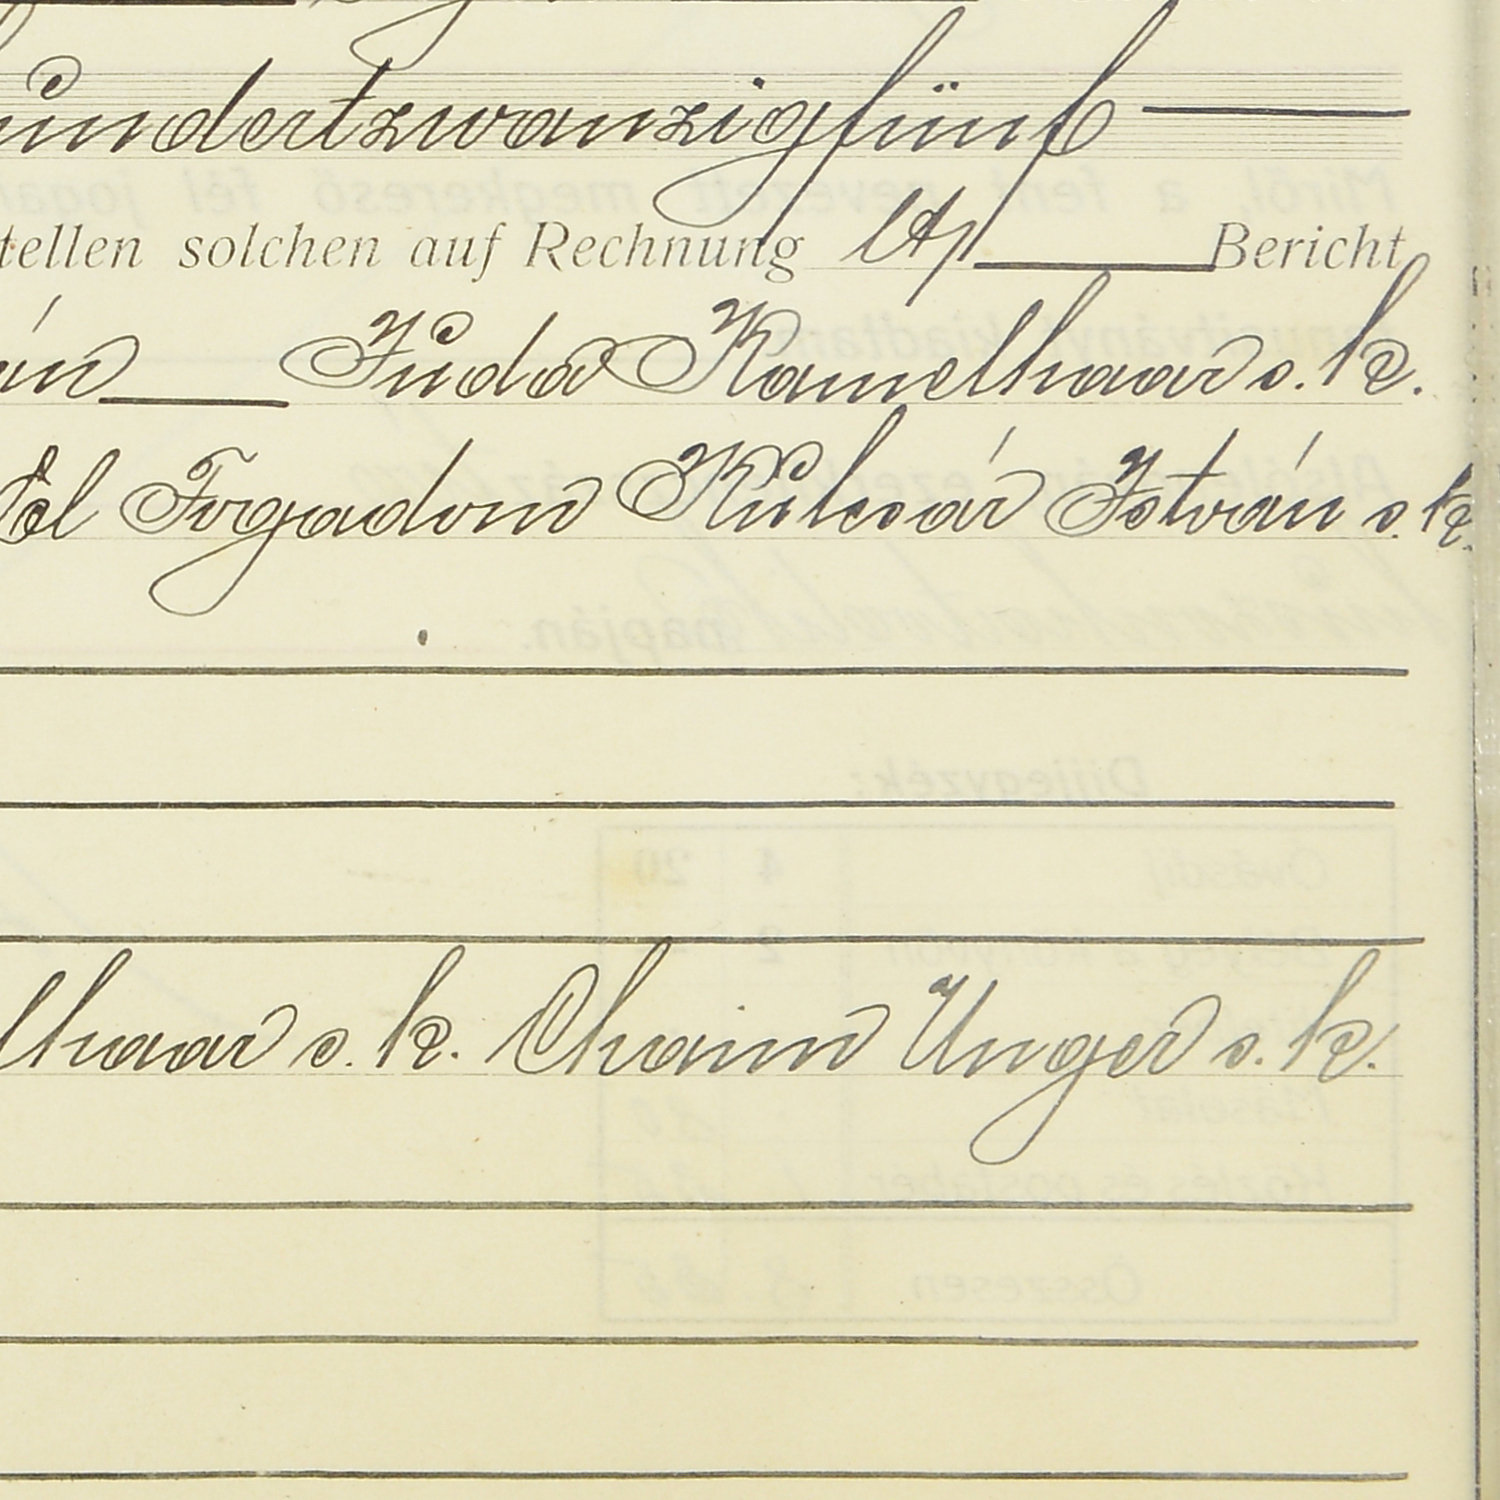 undertzwanzigfünf
tellen solchen auf Rechnung Bericht
Juda Kamelhaar s. k.
El Fogadom Kulcsár István s. k.
lhaar s. k. Chaim Unger s. k.